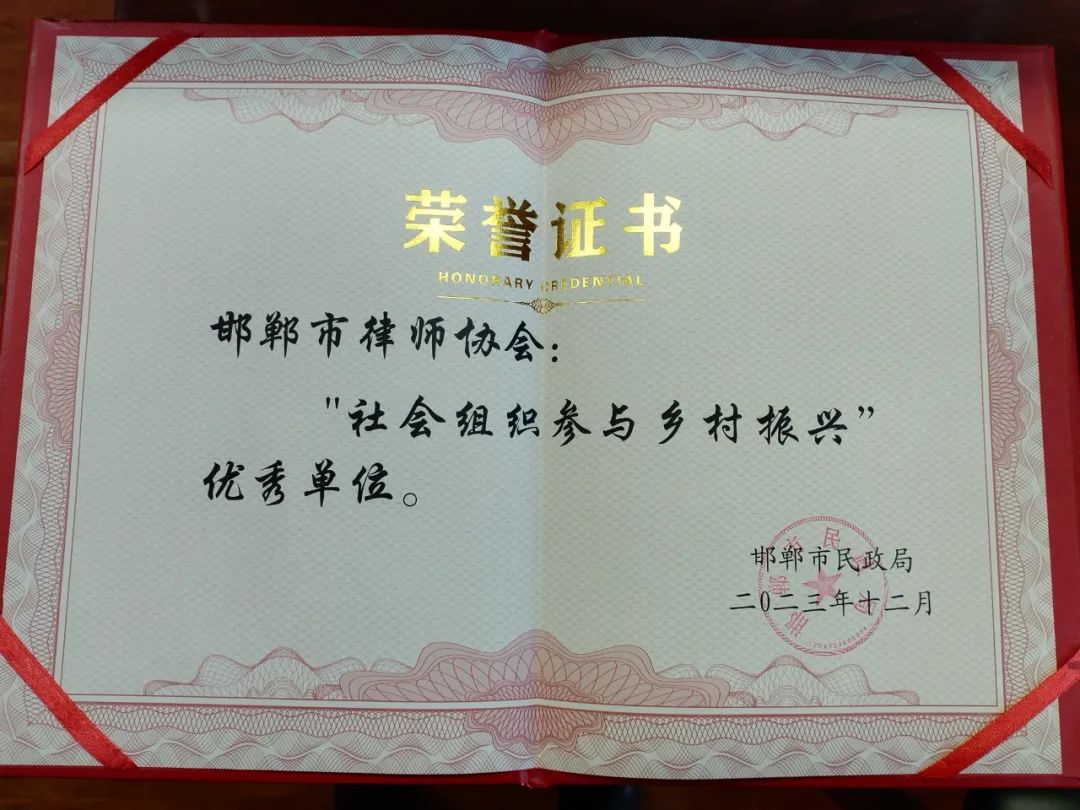 荣誉证书
HONORARY CREDENTIAL
邯郸市律师协会：
"社会组织参与乡村振兴”
优秀单位。
邯郸市民政局
二0二三年十二月